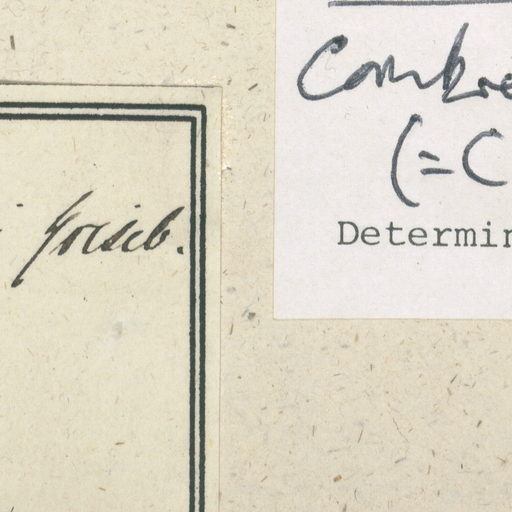 Griseb.
Combre
(= C
Determin